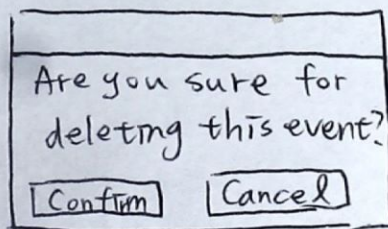 Are you sure for
deleting this event?
Confirm
Cancel